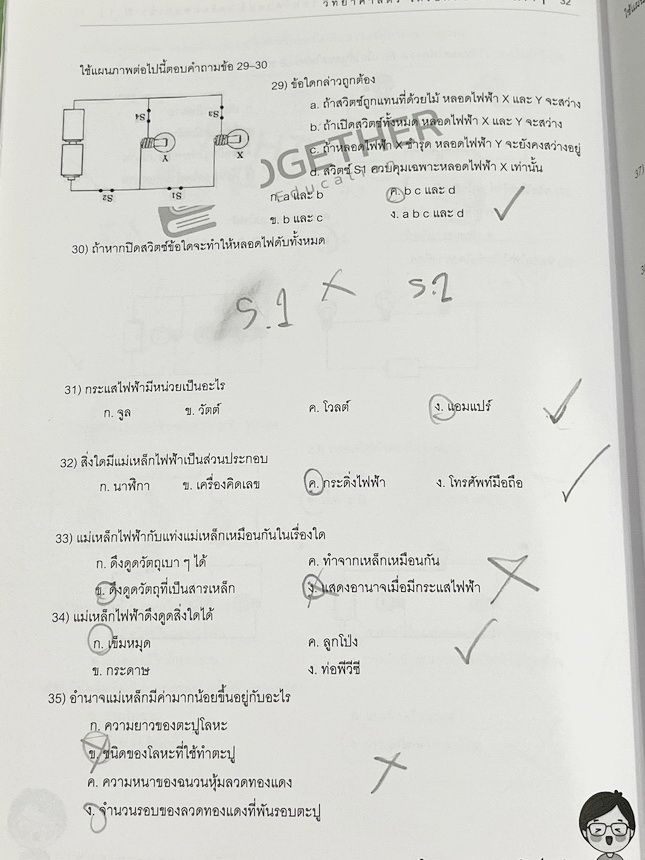 32
ใช้แผนภาพต่อไปนี้ตอบคำถามข้อ 29-30
29) ข้อใดกล่าวถูกต้อง
a. ถ้าสวิตช์ถูกแทนที่ด้วยไม้ หลอดไฟฟ้า X และ Y จะสว่าง
b. ถ้าเปิดสวิตซ์ทั้งหมด หลอดไฟฟ้า X และ Y จะสว่าง
c. ถ้าหลอดไฟฟ้า X ชำรุด หลอดไฟฟ้า Y จะยังคงสว่างอยู่
d. สวิตซ์ S1 ควบคุมเฉพาะหลอดไฟฟ้า X เท่านั้น
ก. a และ b
ค. b c และ d
ข. b และ c
ง. a b c และ d
S4
S3
Y
X
S2
S1
OGETHER
Education
30) ถ้าหากปิดสวิตซ์ข้อใดจะทำให้หลอดไฟดับทั้งหมด
S.1 S.2
31) กระแสไฟฟ้ามีหน่วยเป็นอะไร
ก. จูล ข. วัตต์ ค. โวลต์ ง. แอมแปร์
32) สิ่งใดมีแม่เหล็กไฟฟ้าเป็นส่วนประกอบ
ก. นาฬิกา ข. เครื่องคิดเลข ค. กระดิ่งไฟฟ้า ง. โทรศัพท์มือถือ
33) แม่เหล็กไฟฟ้ากับแท่งแม่เหล็กเหมือนกันในเรื่องใด
ก. ดึงดูดวัตถุเบา ๆ ได้ ค. ทำจากเหล็กเหมือนกัน
ข. ดึงดูดวัตถุที่เป็นสารเหล็ก ง. แสดงอานาจเมื่อมีกระแสไฟฟ้า
34) แม่เหล็กไฟฟ้าดึงดูดสิ่งใดได้
ก. เข็มหมุด ค. ลูกโป่ง
ข. กระดาษ ง. ท่อพีวีซี
35) อำนาจแม่เหล็กมีค่ามากน้อยขึ้นอยู่กับอะไร
ก. ความยาวของตะปูโลหะ
ข. ชนิดของโลหะที่ใช้ทำตะปู
ค. ความหนาของฉนวนหุ้มลวดทองแดง
ง. จำนวนรอบของลวดทองแดงที่พันรอบตะปู